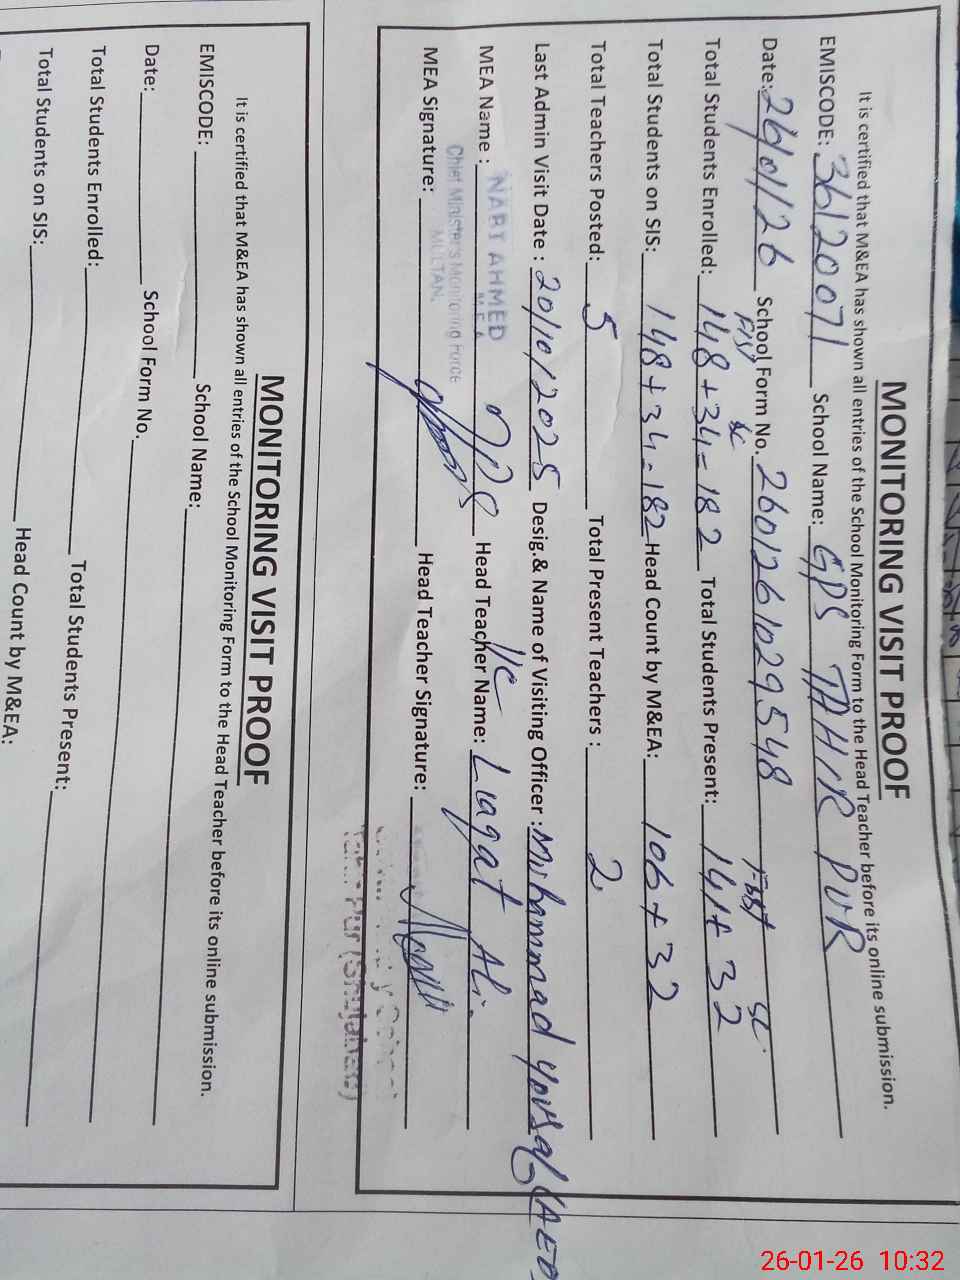 MONITORING VISIT PROOF
It is certified that M&EA has shown all entries of the School Monitoring Form to the Head Teacher before its online submission.
EMISCODE: 36120071 School Name: GPS TAHIR PUR
Date: 26/01/26 School Form No. 2601261029548
First SC First SC
Total Students Enrolled: 148+34=182 Total Students Present: 141+32
Total Students on SIS: 148+34=182 Head Count by M&EA: 106+32
Total Teachers Posted: 5 Total Present Teachers : 2
Last Admin Visit Date : 20/10/2025 Desig & Name of Visiting Officer : Muhammad Yousaf (AEO
MEA Name : NART AHMED Head Teacher Name: I/C Liaqat Ali.
M.E.A
Chief Minister's Monitoring Force
MULTAN.
MEA Signature: Head Teacher Signature:
MONITORING VISIT PROOF
It is certified that M&EA has shown all entries of the School Monitoring Form to the Head Teacher before its online submission.
EMISCODE: School Name:
Date: School Form No.
Total Students Enrolled: Total Students Present:
Total Students on SIS: Head Count by M&EA:
26-01-26 10:32